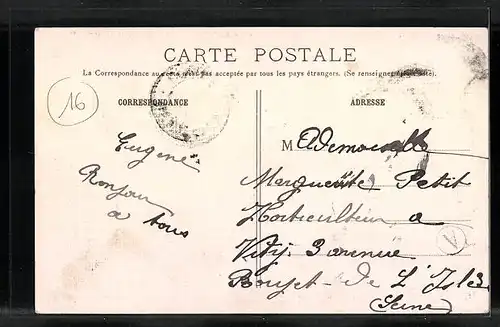 CARTE POSTALE
La Correspondance au recto n'est pas acceptée par tous les pays étrangers. (Se renseigner à la Poste).
16
CORRESPONDANCE
ADRESSE
Eugène
Bonjour
a tous
Mademoiselle
Marguerite Petit
Horticulteur a
Vitry 3 avenue
Rouget-De L'Isle
(Seine)
A